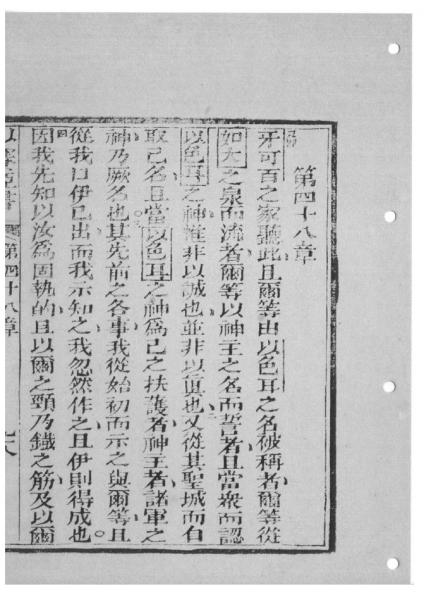 第四十八章
牙可百之家聽此且爾等由以色耳之名被稱者爾等從
如大之泉而流者爾等以神主之名而誓者且當衆而認
以色耳之神惟非以誠也並非以直也又從其聖城而自
取己名且當以色耳之神爲己之扶護者神主者諸軍之
神乃厥名也其先前之各事我從始初而示之與爾等且
從我口伊已出而我示知之我忽然作之且伊則得成也
因我先知以汝爲固執的且以爾之頸乃鐵之筋及以爾
第四十八章